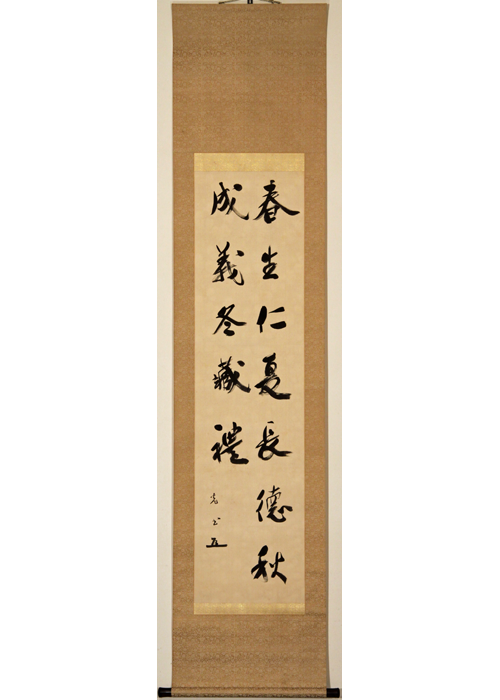 春生仁夏長德秋
成義冬藏禮